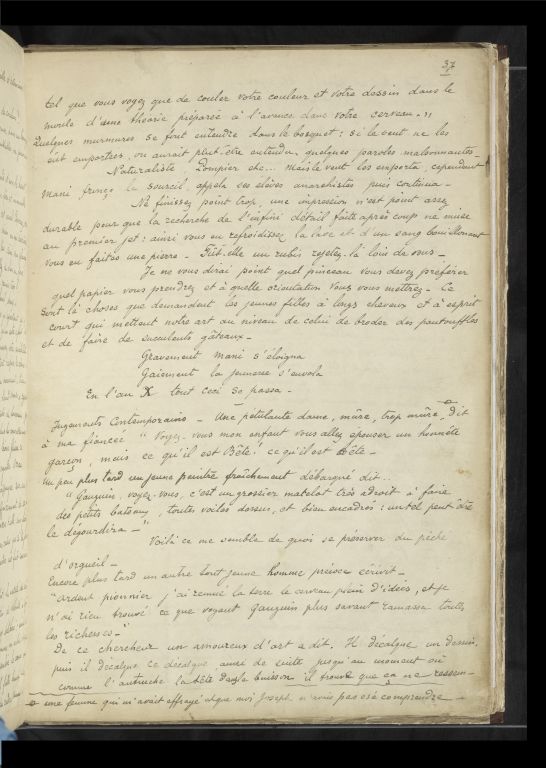 37
tel que vous voyez que de couler votre couleur et votre dessin dans le
moule d'une théorie préparée à l'avance dans votre cerveau. "
Quelques murmures se font entendre dans le bosquet : si le vent ne les
eut emportées, on aurait peut-être entendu quelques paroles malsonnantes -
Naturaliste Pompier etc... Mais le vent les emporta, cependant
Mani fronça le sourcil, appela ses élèves anarchistes puis continua -
Ne finissez point trop, une impression n'est point assez
durable pour que la recherche de l'infini détail faite après coup ne nuise
au premier jet : ainsi vous en refroidissez la lave et d'un sang bouillonnant
vous en faites une pierre - Fût-elle un rubis rejetez-la loin de vous -
Je ne vous dirai point quel pinceau vous devez préférer
quel papier vous prendrez et à quelle orientation vous vous mettrez - Ce
sont là choses que demandent les jeunes filles à longs cheveux et à esprit
court qui mettent notre art au niveau de celui de broder des pantouffles
et de faire de succulents gâteaux -
Gravement Mani s'éloigna
Gaiement la jeunesse s'envola
En l'an X tout ceci se passa -
Jugements Contemporains - Une pétulante dame, mûre, trop mûre, dit
à ma fiancée " Voyez-vous mon enfant vous allez épouser un honnête
garçon, mais ce qu'il est Bête! ce qu'il est Bête -
Un peu plus tard un jeune peintre fraîchement débarqué dit..
" Gauguin, voyez-vous, c'est un grossier matelot très adroit à faire
des petits bateaux, toutes voiles dessus, et bien encadrés : un tel peut être
le dégourdira - "
Voilà ce me semble de quoi se préserver du péché
d'orgueil -
Encore plus tard un autre tout jeune homme précoce écrivit -
" Ardent pionnier j'ai remué la terre le cerveau plein d'idées, et je
n'ai rien trouvé ce que voyant Gauguin plus savant ramassa toutes
les richesses - "
De ce chercheur un amoureux d'art a dit. Il décalque un dessin,
puis il décalque ce décalque ainsi de suite jusqu'au moment où
comme l'autruche la tête dans le buisson il trouve que ça ne ressem-
une femme qui m'avait effrayé et que moi Joseph n'avais pas osé comprendre -